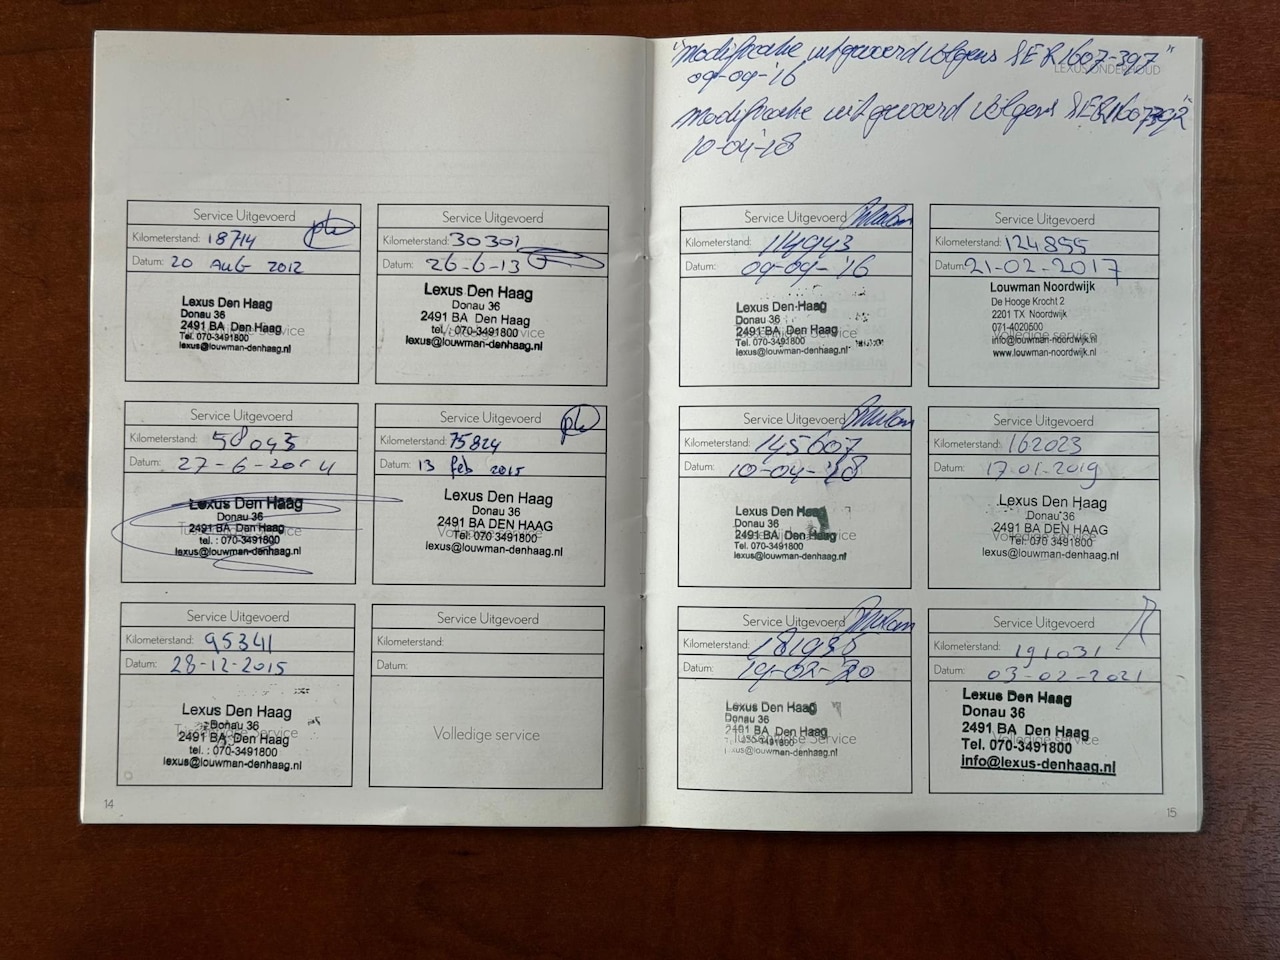 "Modificatie uitgevoerd volgens SER1607-397"
LEXUS ONDERHOUD
09-09-'16
Modificatie uitgevoerd volgens
10-04-'18
Service Uitgevoerd
Kilometerstand: 18714
Datum: 20 AUG 2012
Lexus Den Haag
Donau 36
2491 BA Den Haag
Tel. 070-3491800
lexus@louwman-denhaag.nl
Service Uitgevoerd
Kilometerstand: 30301
Datum: 26-6-13
Lexus Den Haag
Donau 36
2491 BA Den Haag
tel. : 070-3491800
Volledige service
lexus@louwman-denhaag.nl
Service Uitgevoerd
Kilometerstand: 58043
Datum: 27-6-2014
Lexus Den Haag
Donau 36
2491 BA Den Haag
tel. : 070-3491800
lexus@louwman-denhaag.nl
Service Uitgevoerd
Kilometerstand: 75824
Datum: 13 feb 2015
Lexus Den Haag
Donau 36
2491 BA DEN HAAG
Volledige service
Tel: 070 3491800
lexus@louwman-denhaag.nl
Service Uitgevoerd
Kilometerstand: 95341
Datum: 28-12-2015
Lexus Den Haag
Donau 36
2491 BA Den Haag
tel. : 070-3491800
lexus@louwman-denhaag.nl
Service Uitgevoerd
Kilometerstand:
Datum:
Volledige service
14
Service Uitgevoerd
Kilometerstand: 114943
Datum: 09-09-'16
Lexus Den Haag
Donau 36
2491 BA Den Haag
Tel. 070-3491800
lexus@louwman-denhaag.nl
Service Uitgevoerd
Kilometerstand: 124855
Datum: 21-02-2017
Louwman Noordwijk
De Hooge Krocht 2
2201 TX Noordwijk
071-4020500
Volledige service
info@louwman-noordwijk.nl
www.louwman-noordwijk.nl
Service Uitgevoerd
Kilometerstand: 145607
Datum: 10-04-'18
Lexus Den Haag
Donau 36
2491 BA Den Haag
tel. : 070-3491800
lexus@louwman-denhaag.nl
Service Uitgevoerd
Kilometerstand: 162023
Datum: 17-01-2019
Lexus Den Haag
Donau 36
2491 BA DEN HAAG
Volledige service
Tel: 070 3491800
lexus@louwman-denhaag.nl
Service Uitgevoerd
Kilometerstand:
Datum: 19-02-'20
Lexus Den Haag
Donau 36
2491 BA Den Haag
lexus@louwman-denhaag.nl
Service Uitgevoerd
Kilometerstand: 191031
Datum: 03-02-2021
Lexus Den Haag
Donau 36
2491 BA Den Haag
Volledige service
Tel. 070-3491800
info@lexus-denhaag.nl
15